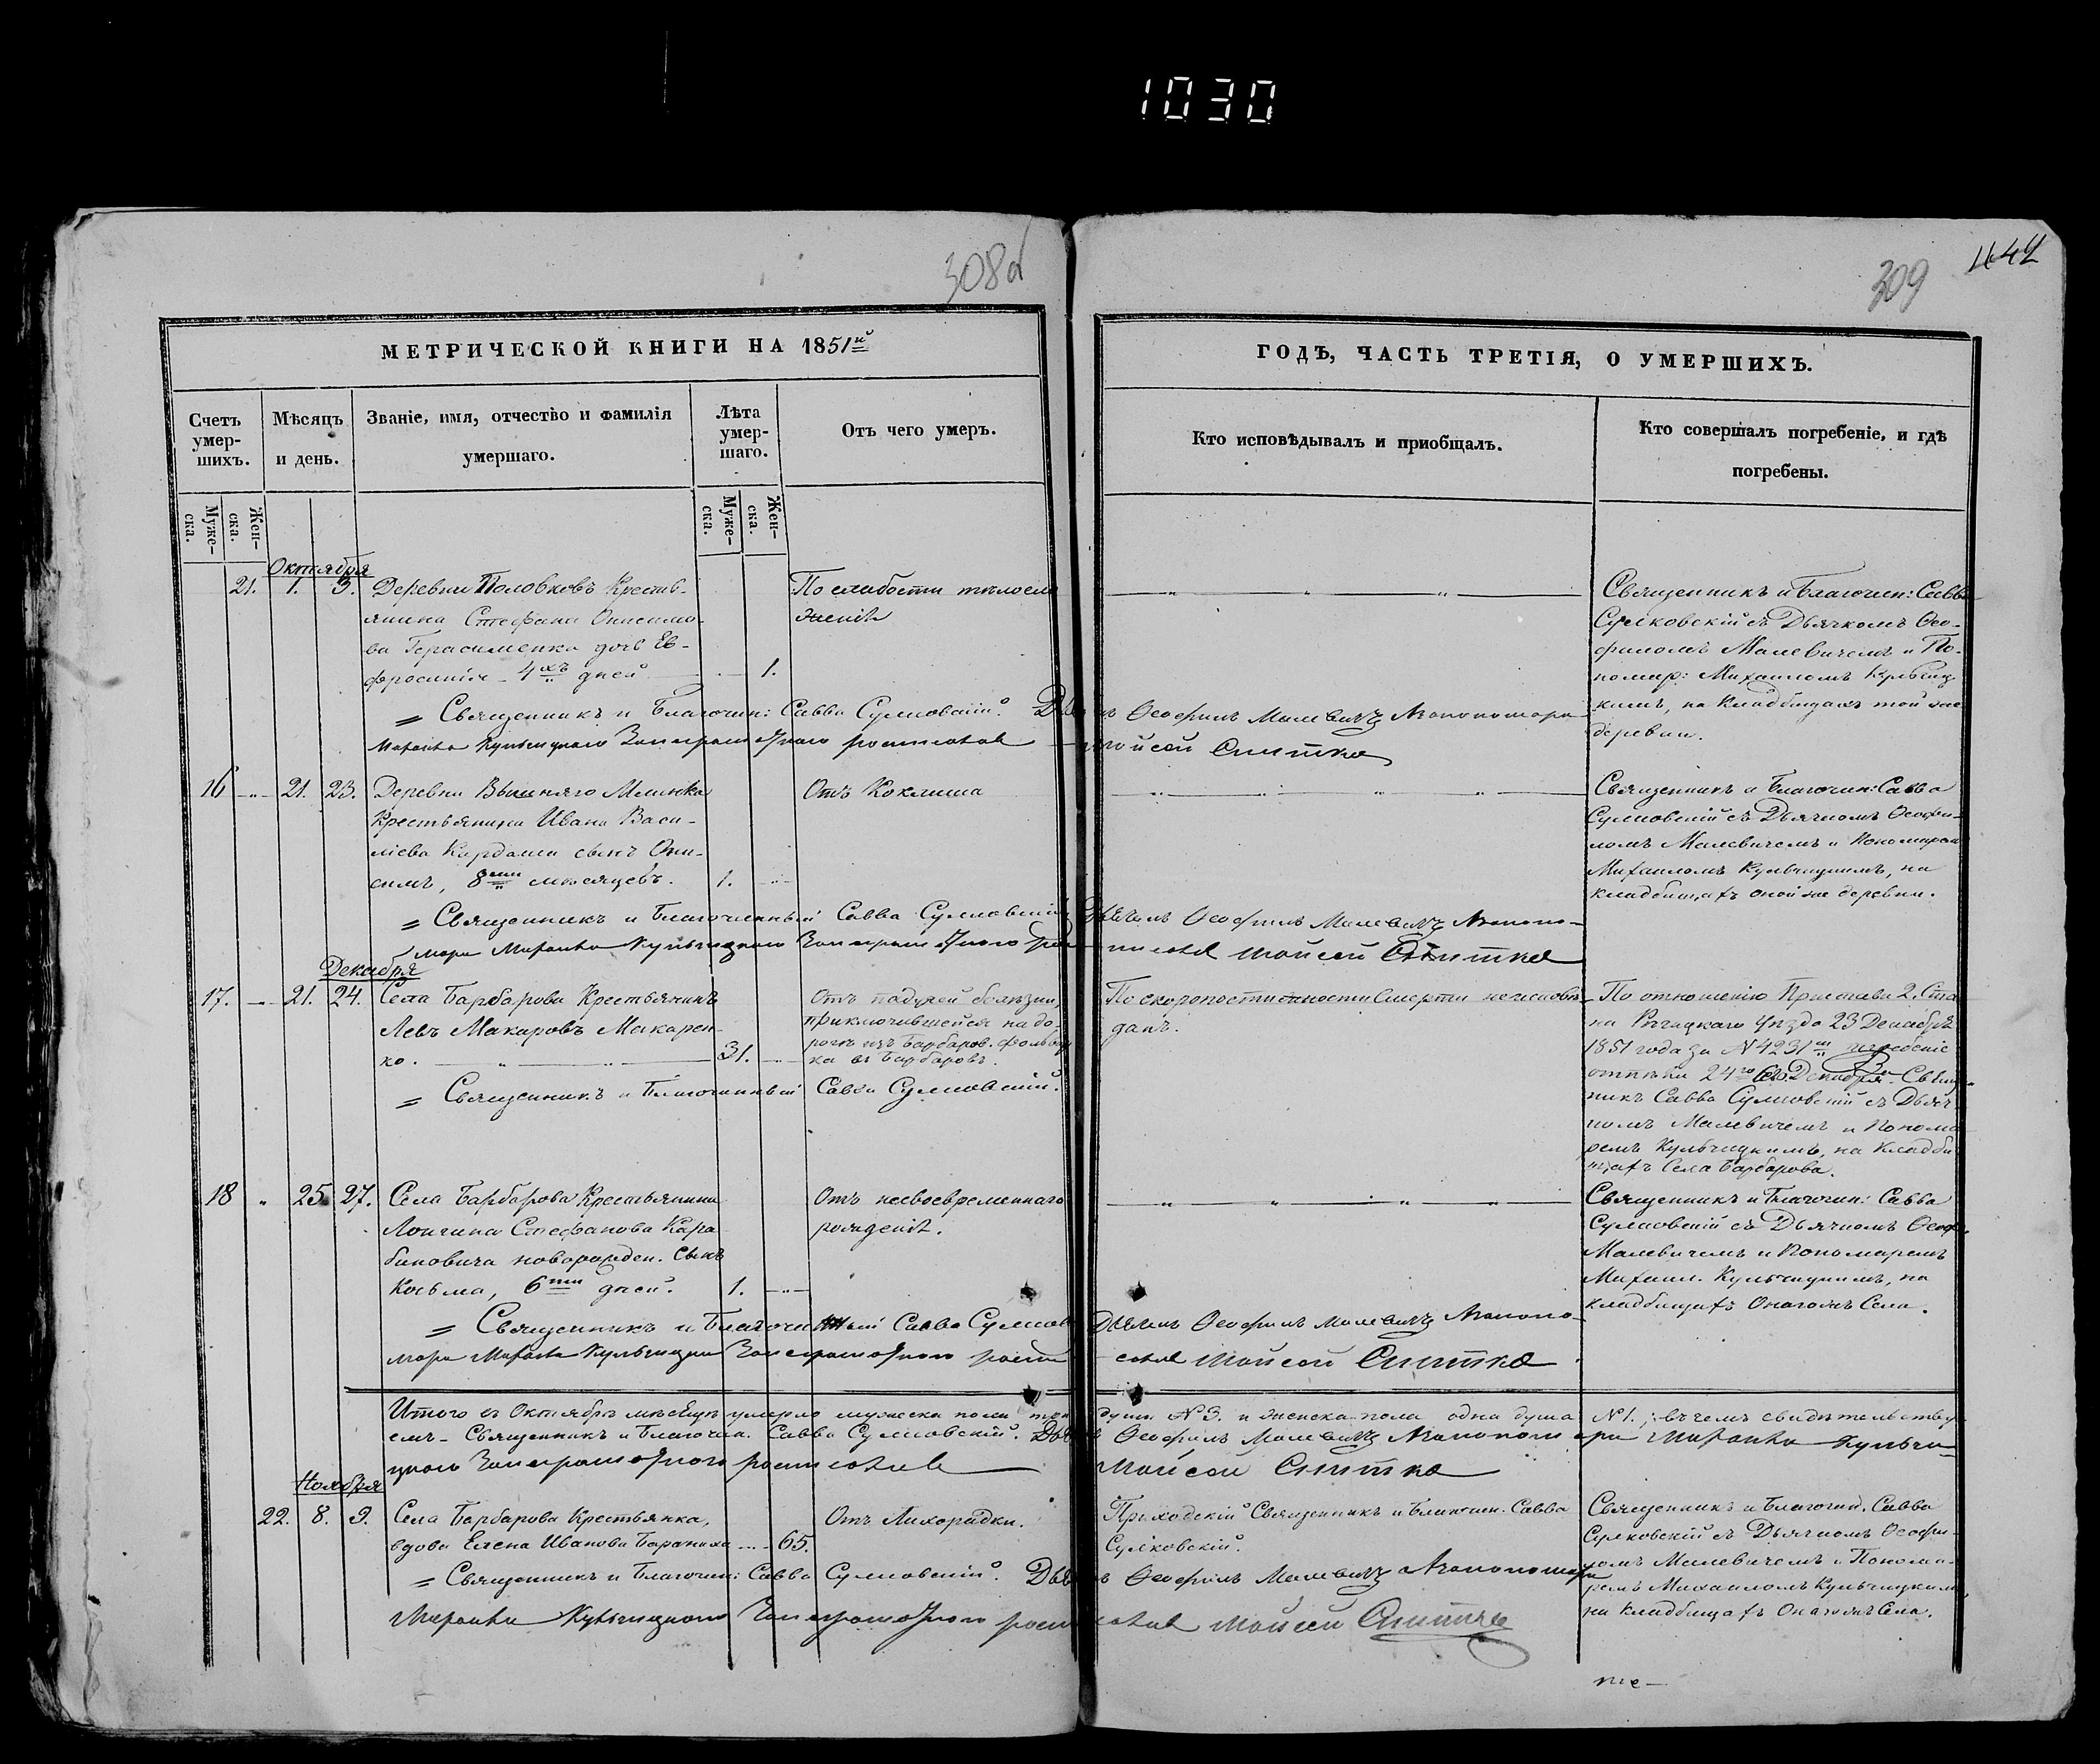 1030
308об
309
442
МЕТРИЧЕСКОЙ КНИГИ НА 1851й
ГОДЪ, ЧАСТЬ ТРЕТІЯ, О УМЕРШИХЪ.
Счетъ умер-шихъ.
Мѣсяцъ и день.
Званіе, имя, отчество и фамилія умершаго.
Лѣта умер-шаго.
Отъ чего умеръ.
Кто исповѣдывалъ и приобщалъ.
Кто совершалъ погребеніе, и гдѣ погребены.
Муже-ска.
Жен-ска.
Муже-ска.
Жен-ска.
Октября
21. 1. 3.
Деревни Половковъ Крестья-
янина Стефана Онисимо-
ва Герасименка дочь Ев-
фросинія 4хъ дней 1.
По слабости тѣлосло
женія
Священникъ и Благочин: Савва
Сулковскій съ Дьячкомъ Ѳео-
филомъ Малевичемъ и По-
номар: Михаиломъ Кульчиц-
кимъ, на Кладбищахъ той же
деревни.
Священникъ и Благочин: Савва Сулковскій. Дьячекъ Ѳеофилъ Малевичъ
Моисей Снитко
16 21. 23.
Деревни Вышняго Млинка
Крестьянина Ивана Васи-
ліева Кардаша сынъ Они-
симъ, 8ми мѣсяцевъ. 1.
Отъ Коклюша
Священникъ и Благочин: Савва
Сулковскій съ Дьячкомъ Ѳеофи-
ломъ Малевичемъ и Пономаремъ
Михаиломъ Кульчицкимъ, на
кладбищахъ оной же деревни.
Священникъ и Благочинный Савва Сулковскій Дьячекъ Ѳеофилъ Малевичъ
Моисей Снитко
Декабря
17. 21. 24.
Села Барбарова Крестьянинъ
Левъ Макаровъ Макарен-
ко. 31.
Отъ падучей болѣзни,
приключившейся на до-
рогѣ изъ Барбаров. фольвар
ка въ Барбаровъ.
По скоропостижности Смерти неисповѣ-
данъ.
По отношенію Пристава 2. Ста
на Рѣчицкаго Уѣзда 23 Декабря
1851 года за N 4231 погребеніе
24го Декабря Священ
никъ Савва Сулковскій съ Дьяч
комъ Малевичемъ и Понома
ремъ Кульчицкимъ, на Кладби
щахъ Села Барбарова.
Священникъ и Благочинный Савва Сулковскій.
18 25 27.
Села Барбарова Крестьянина
Лонгина Стефанова Кара
биновича новорожден. сынъ
Косьма, 6ти дней. 1.
Отъ несвоевременнаго
рожденія.
Священникъ и Благочин: Савва
Сулковскій съ Дьячкомъ Ѳеоф.
Малевичемъ и Пономаремъ
Михаил. Кульчицкимъ, на
кладбищахъ Онагожъ Села.
Священникъ и Благочинный Савва Сулков Дьячекъ Ѳеофилъ Малевичъ
Моисей Снитко
Итого въ Октябрѣ мѣсяцѣ умерло мужеска пола три души N 3. и женска пола одна душа N 1.; въ чемъ свидѣтельству
емъ Священникъ и Благочин. Савва Сулковскій. Ѳеофилъ Малевичъ
Моисей Снитко
Ноября
22. 8. 9.
Села Барбарова Крестьянка,
вдова Елена Иванова Бараниха 65.
Отъ Лихорадки.
Приходскій Священникъ и Благочин. Савва
Сулковскій.
Священникъ и Благочин. Савва
Сулковскій съ Дьячкомъ Ѳеофи-
ломъ Малевичемъ и Понома-
ремъ Михаиломъ Кульчицкимъ
на Кладбищахъ Онагожъ Села.
Священникъ и Благочин: Савва Сулковскій. Ѳеофилъ Малевичъ
Моисей Снитко